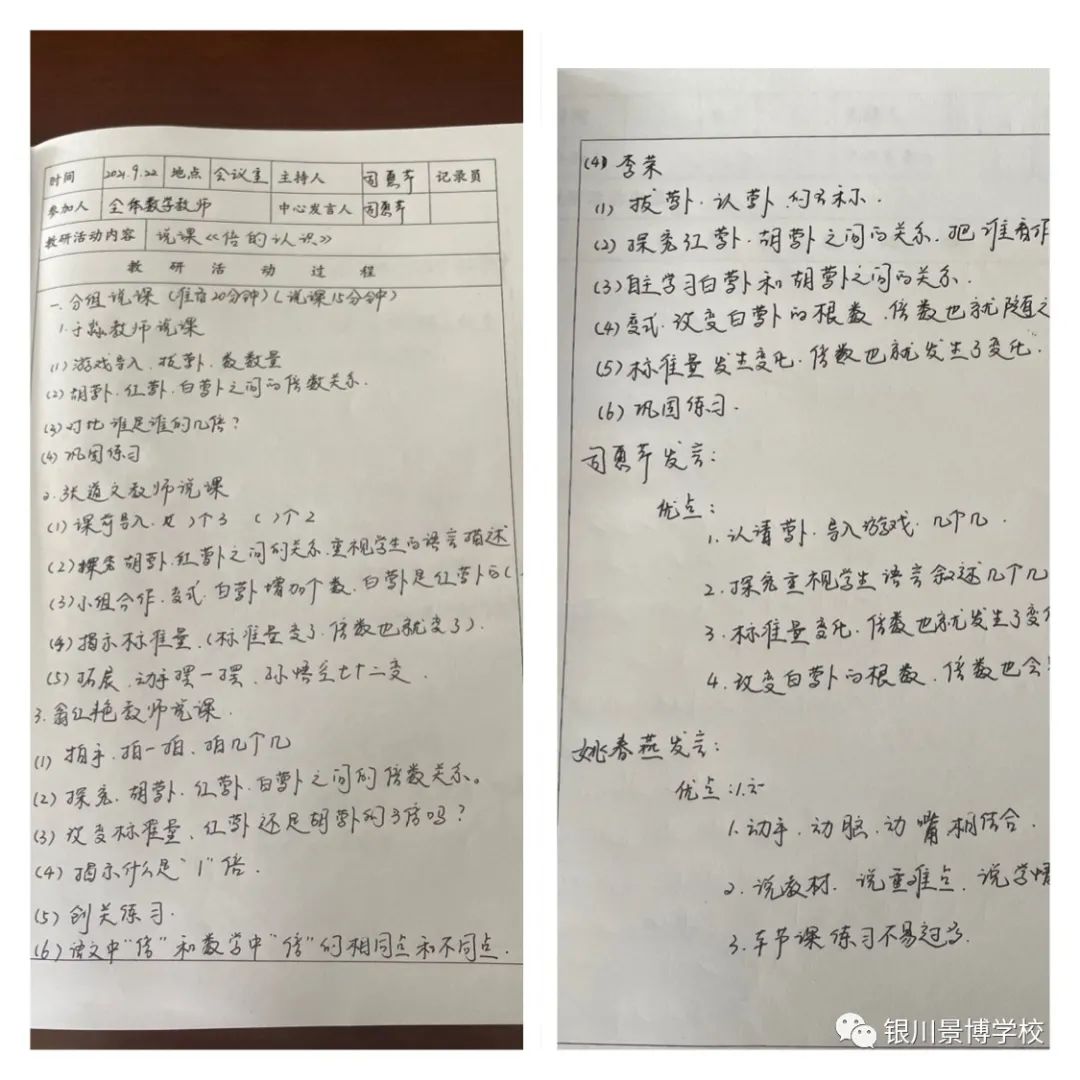 时间 2021.9.22 地点 会议室 主持人 司惠芹 记录员
参加人 全体数学教师 中心发言人 司惠芹
教研活动内容 说课《倍的认识》
教 研 活 动 过 程
一.分组说课(准备20分钟)(说课15分钟)
1.于淼教师说课
(1)游戏导入.拔萝卜.数数量
(2)胡萝卜.红萝卜.白萝卜之间的倍数关系.
(3)对比谁是谁的几倍?
(4)巩固练习
2.张道文教师说课
(1)课前导入. ( )个3 ( )个2
(2)探究胡萝卜.红萝卜之间的关系.重视学生的语言描述
(3)小组合作.变式.白萝卜增加个数.白萝卜是红萝卜的(
(4)揭示标准量.(标准量变了.倍数也就变了).
(5)拓展.动手摆一摆.孙悟空七十二变.
3.翁红艳教师说课.
(1)拍手.拍一拍.拍几个几
(2)探究.胡萝卜.红萝卜.白萝卜之间的倍数关系。
(3)改变标准量.红萝卜还是胡萝卜的3倍吗?
(4)揭示什么是"1"倍.
(5)创关练习.
(6)语文中"倍"和数学中"倍"的相同点和不同点.
(4)李荣
(1)拔萝卜.认萝卜的名称.
(2)探究红萝卜.胡萝卜之间的关系.把谁看作
(3)自主学习白萝卜和胡萝卜之间的关系.
(4)变式.改变白萝卜的根数.倍数也就随之
(5)标准量发生变化.倍数也就发生了变化.
(6)巩固练习.
司惠芹发言:
优点:
1.认清萝卜.导入游戏.几个几.
2.探究重视学生语言叙述几个几
3.标准量变化.倍数也就发生了变
4.改变白萝卜的根数.倍数也会
姚春燕发言:
优点:
1.动手.动脑.动嘴相结合.
2.说教材.说重难点.说学情
3.本节课练习不易过多.
银川景博学校